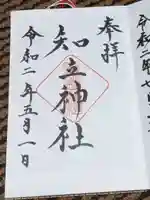 奉拝
知立神社
令和二年五月一日